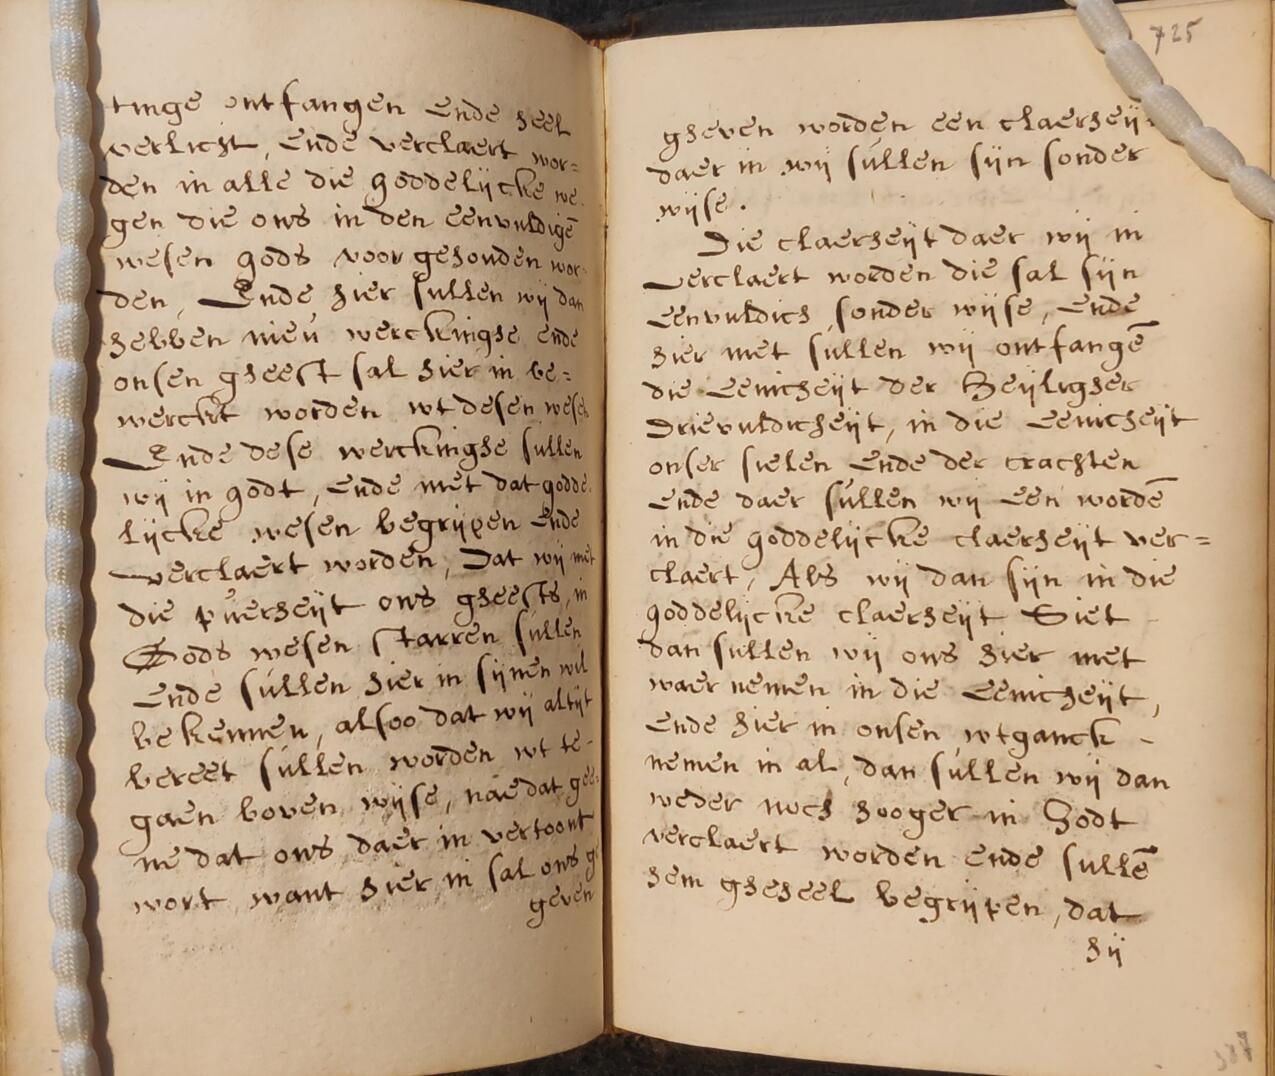 tinge ontfangen ende heel
verlicht, ende verclaert wor=
den in alle die goddelijcke we
gen die ons in den eenvuldigē
wesen gods voor gehouden wor
den, Ende hier sullen wij dan
hebben nieu werckinghe ende
onsen gheest sal hier in be=
werckt worden wt desen wesen
Ende dese werckinghe sullen
wij in godt, ende met dat godde
lijcke wesen begrijpen Ende
verclaert worden, Dat wij met
die puerheijt ons gheests, in
Gods wesen starren sullen
Ende sullen hier in sijnen wil
bekennen, alsoo dat wij altijt
bereet sullen worden wt te-
gaen boven wijse, nae dat gee=
ne dat ons daer in vertoont
wort want hier in sal ons g
geven
725
gheven worden een claerheij
daer in wij sullen sijn sonder
wijse.
Die claerheijt daer wij in
verclaert worden die sal sijn
eenvuldich sonder wijse, Ende
hier met sullen wij ontfangē
die Eenicheijt der Heijligher
Drievuldicheijt, in die Eenicheijt
onser sielen Ende der crachten
Ende daer sullen wij Een wordē
in die goddelijcke claerheijt ver=
claert, Als wij dan sijn in die
goddelijcke claerheijt Siet
dan sullen wij ons hier met
waer nemen in die Eenicheijt,
Ende hier in onsen wtganck -
nemen in al, dan sullen wij dan
weder noch hooger in Godt
verclaert worden ende sullē
hem gheheel begrijpen, dat
hij